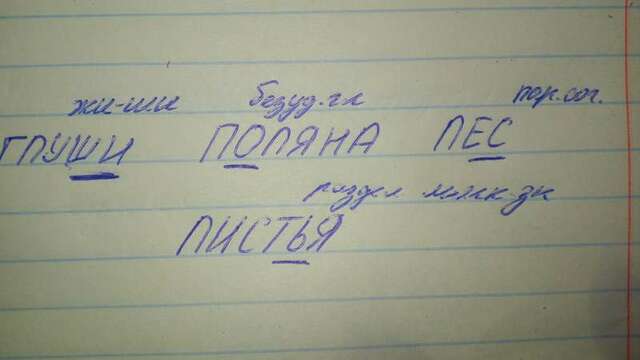 жи-ши безуд.гл пар.сог.
ГЛУШИ ПОЛЯНА ЛЕС
раздел мягк-зн
ЛИСТЬЯ